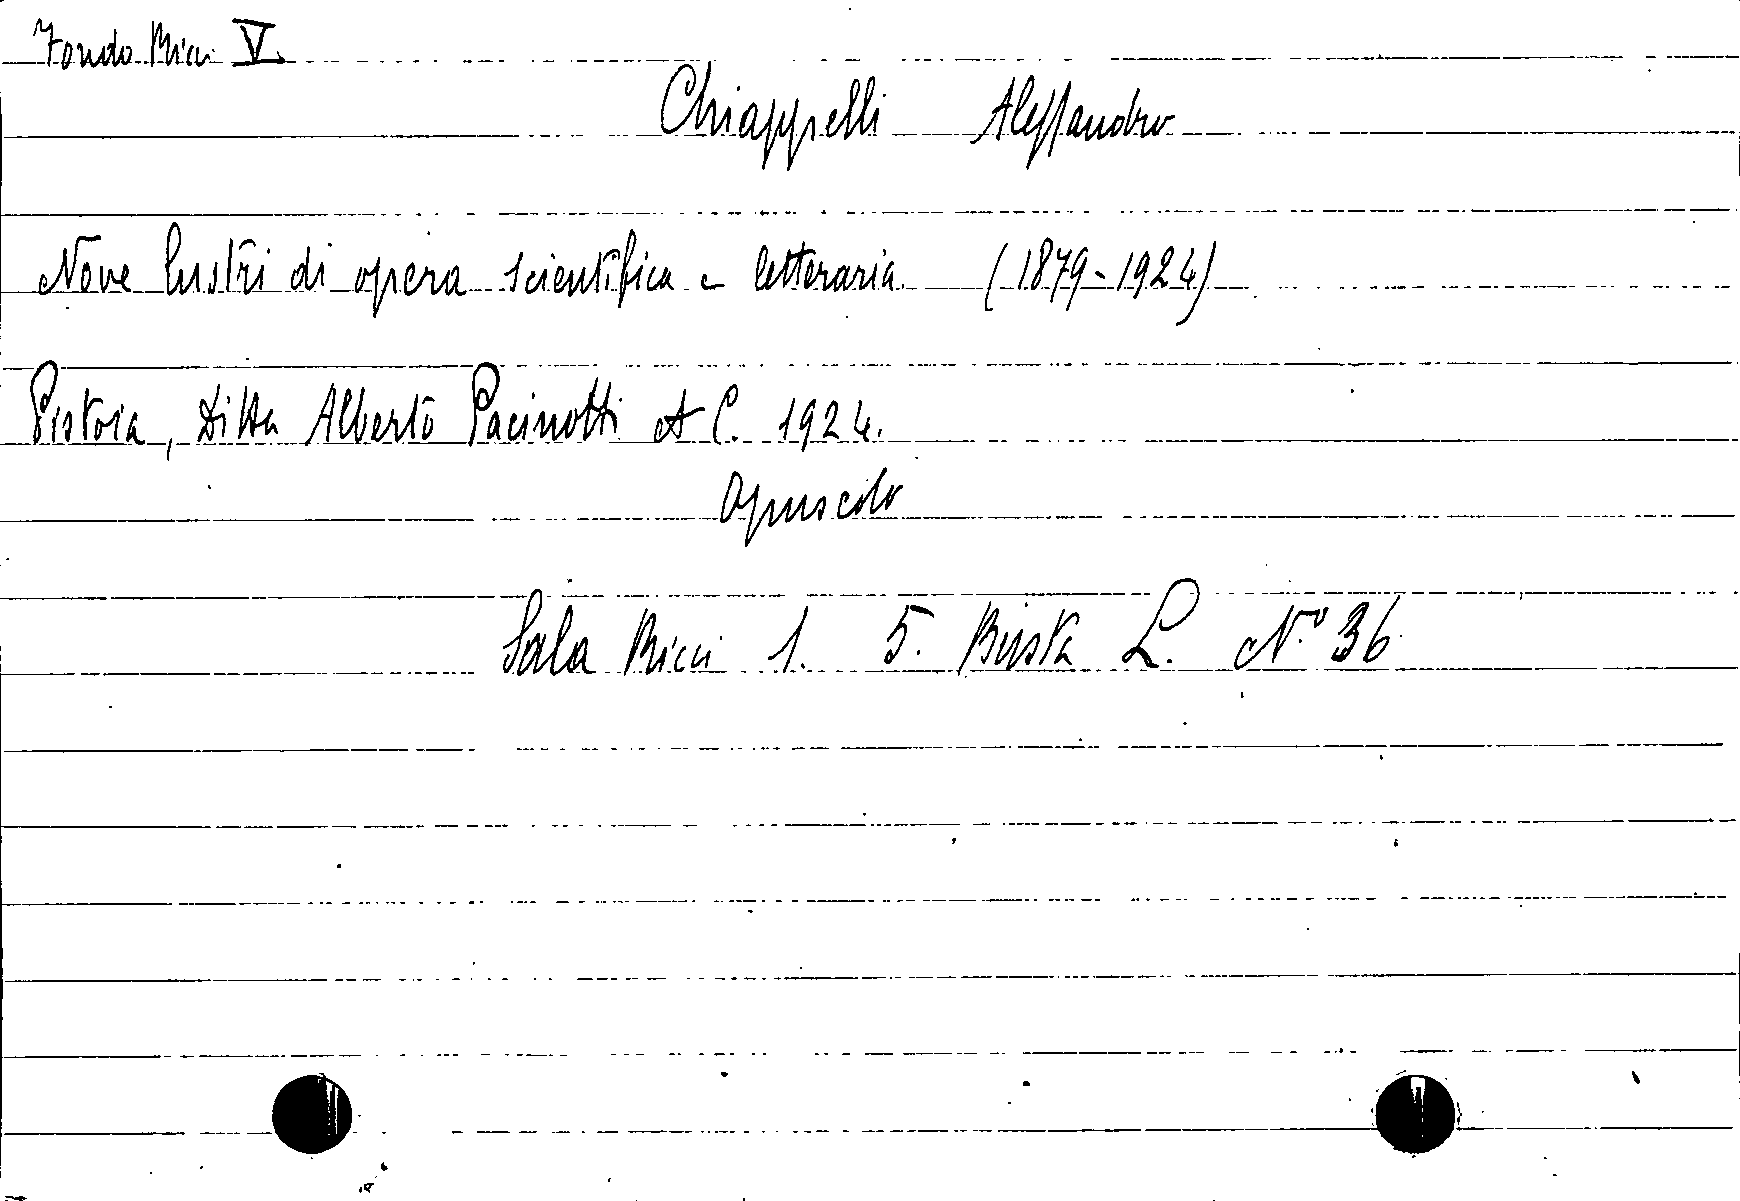 Fondo Ricci V.
Chiappelli Alessandro
Nove lustri di opera scientifica e letteraria (1879-1924)
Pistoia, Ditta Alberto Pacinotti & C. 1924.
Opuscolo
Sala Ricci 1. 5. Busta L. N.º 36